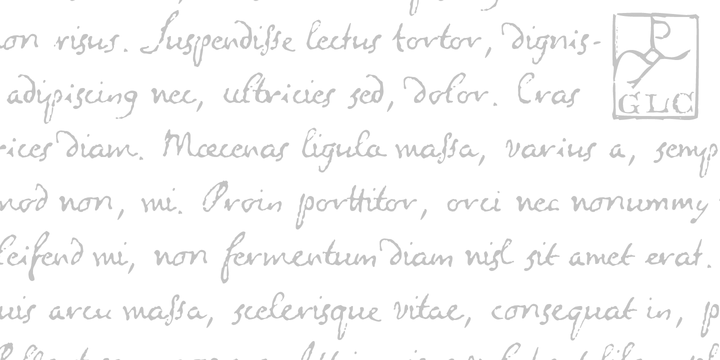 on risus. Suspendisse lectus tortor, dignis-
adipiscing nec, ultricies sed, dolor. Cras
GLC
rices diam. Maecenas ligula massa, varius a, semp
mod non, mi. Proin porttitor, orci nec nonummy
leifend mi, non fermentum diam nisl sit amet erat.
uis arcu massa, scelerisque vitae, consequat in, p